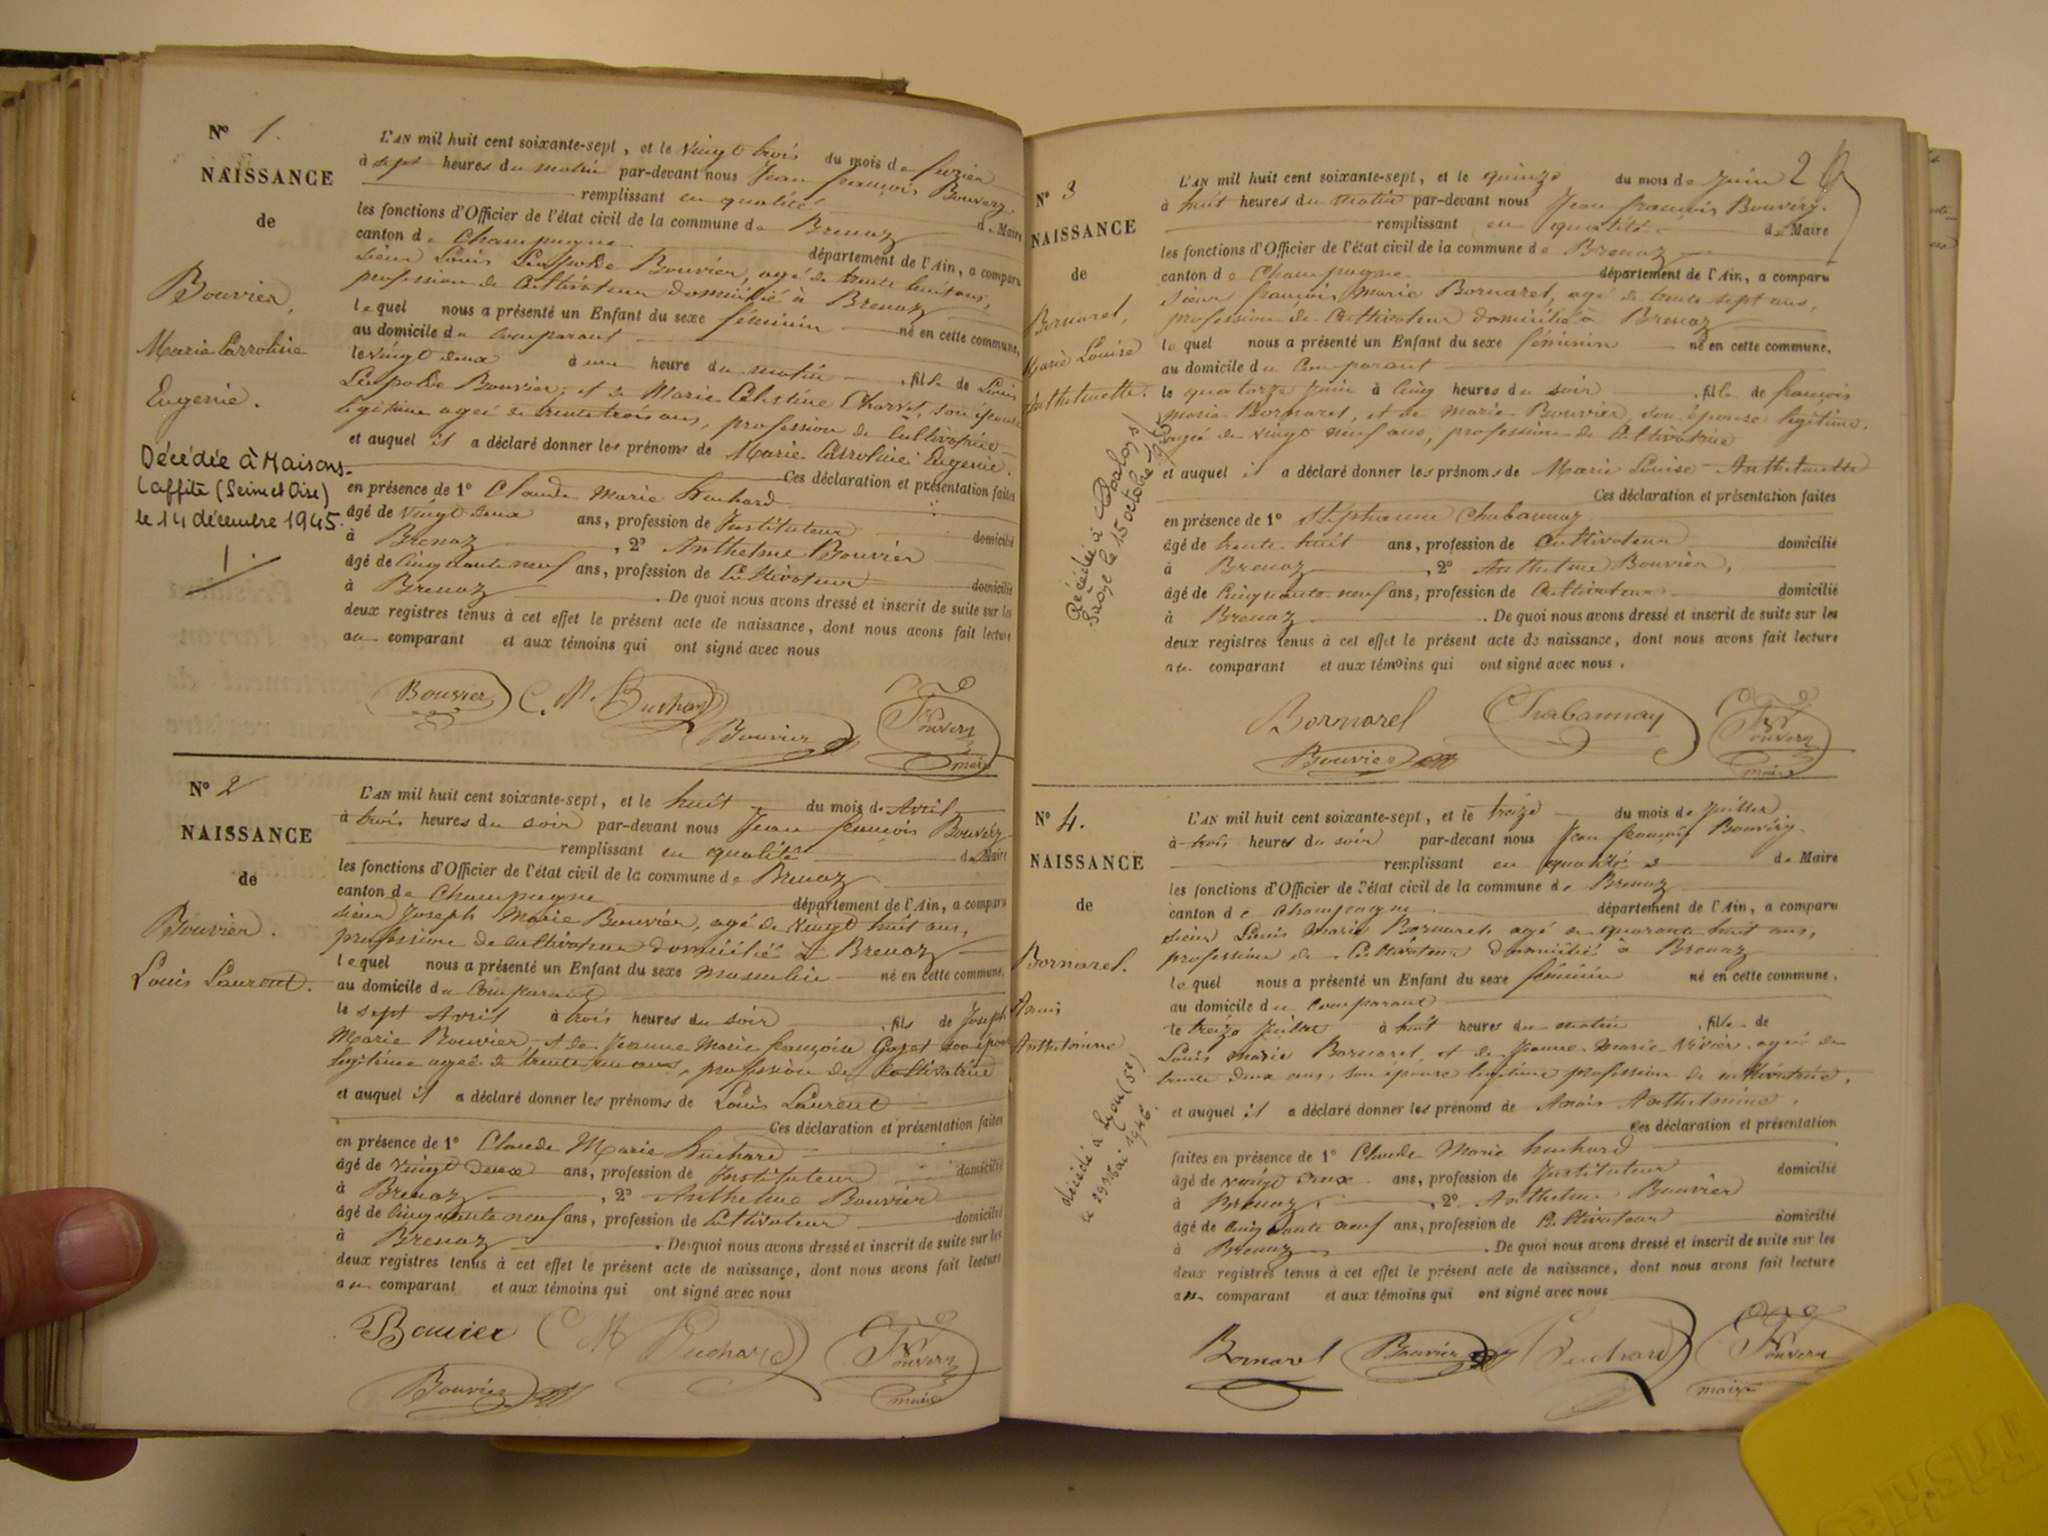 N° 1.
NAISSANCE
de
Bouvier,
Marie Carroline
Eugenie.
Décédée à Maisons-
Laffite (Seine et Oise)
le 14 décembre 1945.
L'AN mil huit cent soixante-sept, et le vingt trois du mois de
à sept heures du matin par-devant nous Jean françois Bouvery
remplissant en qualité de Maire
les fonctions d'Officier de l'état civil de la commune de Brenaz
canton de Champagne département de l'Ain, a comparu
sieur Louis Léopolde Bouvier, agé de trente huit ans,
profession de Cultivateur domicilié à Brenaz
lequel nous a présenté un Enfant du sexe féminin né en cette commune,
au domicile du comparant
le vingt deux à une heure du matin, fille de Louis
Léopolde Bouvier, et de Marie Célestine Charvet, son épouse
légitime agée de trente trois ans, profession de Cultivatrice
et auquel il a déclaré donner les prénoms de Marie Carroline Eugenie.
Ces déclaration et présentation faites
en présence de 1° Claude Marie Huchard
âgé de vingt deux ans, profession de Instituteur domicilié
à Brenaz, 2° Anthelme Bouvier
âgé de Cinquante neuf ans, profession de Cultivateur domicilié
à Brenaz. De quoi nous avons dressé et inscrit de suite sur les
deux registres tenus à cet effet le présent acte de naissance, dont nous avons fait lecture
au comparant et aux témoins qui ont signé avec nous
Bouvier C. M. Huchard
Bouvier Bouvery
maire
N° 2
NAISSANCE
de
Bouvier.
Louis Laurent.
L'AN mil huit cent soixante-sept, et le huit du mois de Avril
à trois heures du soir par-devant nous Jean françois Bouvery
remplissant en qualité de Maire
les fonctions d'Officier de l'état civil de la commune de Brenaz
canton de Champagne département de l'Ain, a comparu
sieur Joseph Marie Bouvier, agé de vingt huit ans,
profession de cultivateur domicilié à Brenaz
lequel nous a présenté un Enfant du sexe masculin né en cette commune,
au domicile du Comparant
le sept Avril à trois heures du soir, fils de Joseph
Marie Bouvier, et de Jeanne Marie françoise Goyet son épouse
légitime agée de trente un ans, profession de Cultivatrice
et auquel il a déclaré donner les prénoms de Louis Laurent
Ces déclaration et présentation faites
en présence de 1° Claude Marie Huchard
âgé de vingt deux ans, profession de Instituteur domicilié
à Brenaz, 2° Anthelme Bouvier
âgé de Cinquante neuf ans, profession de Cultivateur domicilié
à Brenaz. De quoi nous avons dressé et inscrit de suite sur les
deux registres tenus à cet effet le présent acte de naissance, dont nous avons fait lecture
au comparant et aux témoins qui ont signé avec nous
Bouvier C M Huchard Bouvery
Bouvier maire
2
N° 3
NAISSANCE
de
Bornarel,
Marie Louise
Anthelmette.
Décédée à
le 15 octobre
L'AN mil huit cent soixante-sept, et le quinze du mois de Juin
à huit heures du matin par-devant nous Jean francois Bouvery.
remplissant en qualité de Maire
les fonctions d'Officier de l'état civil de la commune de Brenaz
canton de Champagne département de l'Ain, a comparu
sieur françois Marie Bornarel, agé de trente sept ans,
profession de Cultivateur domicilié à Brenaz
lequel nous a présenté un Enfant du sexe féminin né en cette commune,
au domicile du Comparant
le quatorze Juin à cinq heures du soir, fille de françois
Marie Bornarel, et de Marie Bouvier, son épouse légitime,
agée de vingt neuf ans, profession de Cultivatrice
et auquel il a déclaré donner les prénoms de Marie Louise Anthelmette
Ces déclaration et présentation faites
en présence de 1° Stéphanne Chabannay
âgé de trente huit ans, profession de Cultivateur domicilié
à Brenaz, 2° Anthelme Bouvier,
âgé de Cinquante neuf ans, profession de Cultivateur domicilié
à Brenaz. De quoi nous avons dressé et inscrit de suite sur les
deux registres tenus à cet effet le présent acte de naissance, dont nous avons fait lecture
au comparant et aux témoins qui ont signé avec nous.
Bornarel Chabannay Bouvery
Bouvier maire
N° 4.
NAISSANCE
de
Bornarel.
Anais
Anthelmine
décédée à Lyon (5e)
le 29 Mai 1946.
L'AN mil huit cent soixante-sept, et le treize du mois de Juillet
à trois heures du soir par-devant nous Jean françois Bouvery.
remplissant en qualité de Maire
les fonctions d'Officier de l'état civil de la commune de Brenaz
canton de Champagne département de l'Ain, a comparu
sieur Louis Marie Bornarel, agé de quarante huit ans,
profession de Cultivateur domicilié à Brenaz
lequel nous a présenté un Enfant du sexe féminin né en cette commune,
au domicile du comparant
le treize Juillet à huit heures du matin, fille de
Louis Marie Bornarel, et de Jeanne Marie Vivier agée de
trente deux ans, son épouse légitime profession de cultivatrice,
et auquel il a déclaré donner les prénoms de Anais Anthelmine,
Ces déclaration et présentation
faites en présence de 1° Claude Marie huchard
âgé de vingt deux ans, profession de Instituteur, domicilié
à Brenaz, 2° Anthelme Bouvier
âgé de Cinquante neuf ans, profession de Cultivateur domicilié
à Brenaz. De quoi nous avons dressé et inscrit de suite sur les
deux registres tenus à cet effet le présent acte de naissance, dont nous avons fait lecture
au comparant et aux témoins qui ont signé avec nous
Bornarel Bouvier Huchard Bouvery
maire